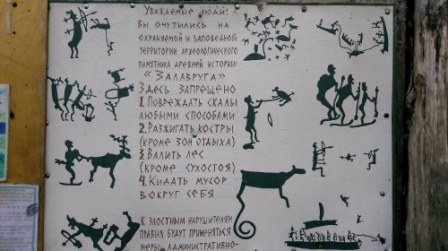 Уважаемые люди!
Вы очутились на
охраняемой и заповедной
территории археологического
памятника древней истории
«Залавруга»
Здесь запрещено
1. Повреждать скалы
любыми способами
2. Разжигать костры
(кроме зон отдыха)
3. Валить лес
(кроме сухостоя)
4. Кидать мусор
вокруг себя
К злостным нарушителям
правил будут применяться
меры административно-